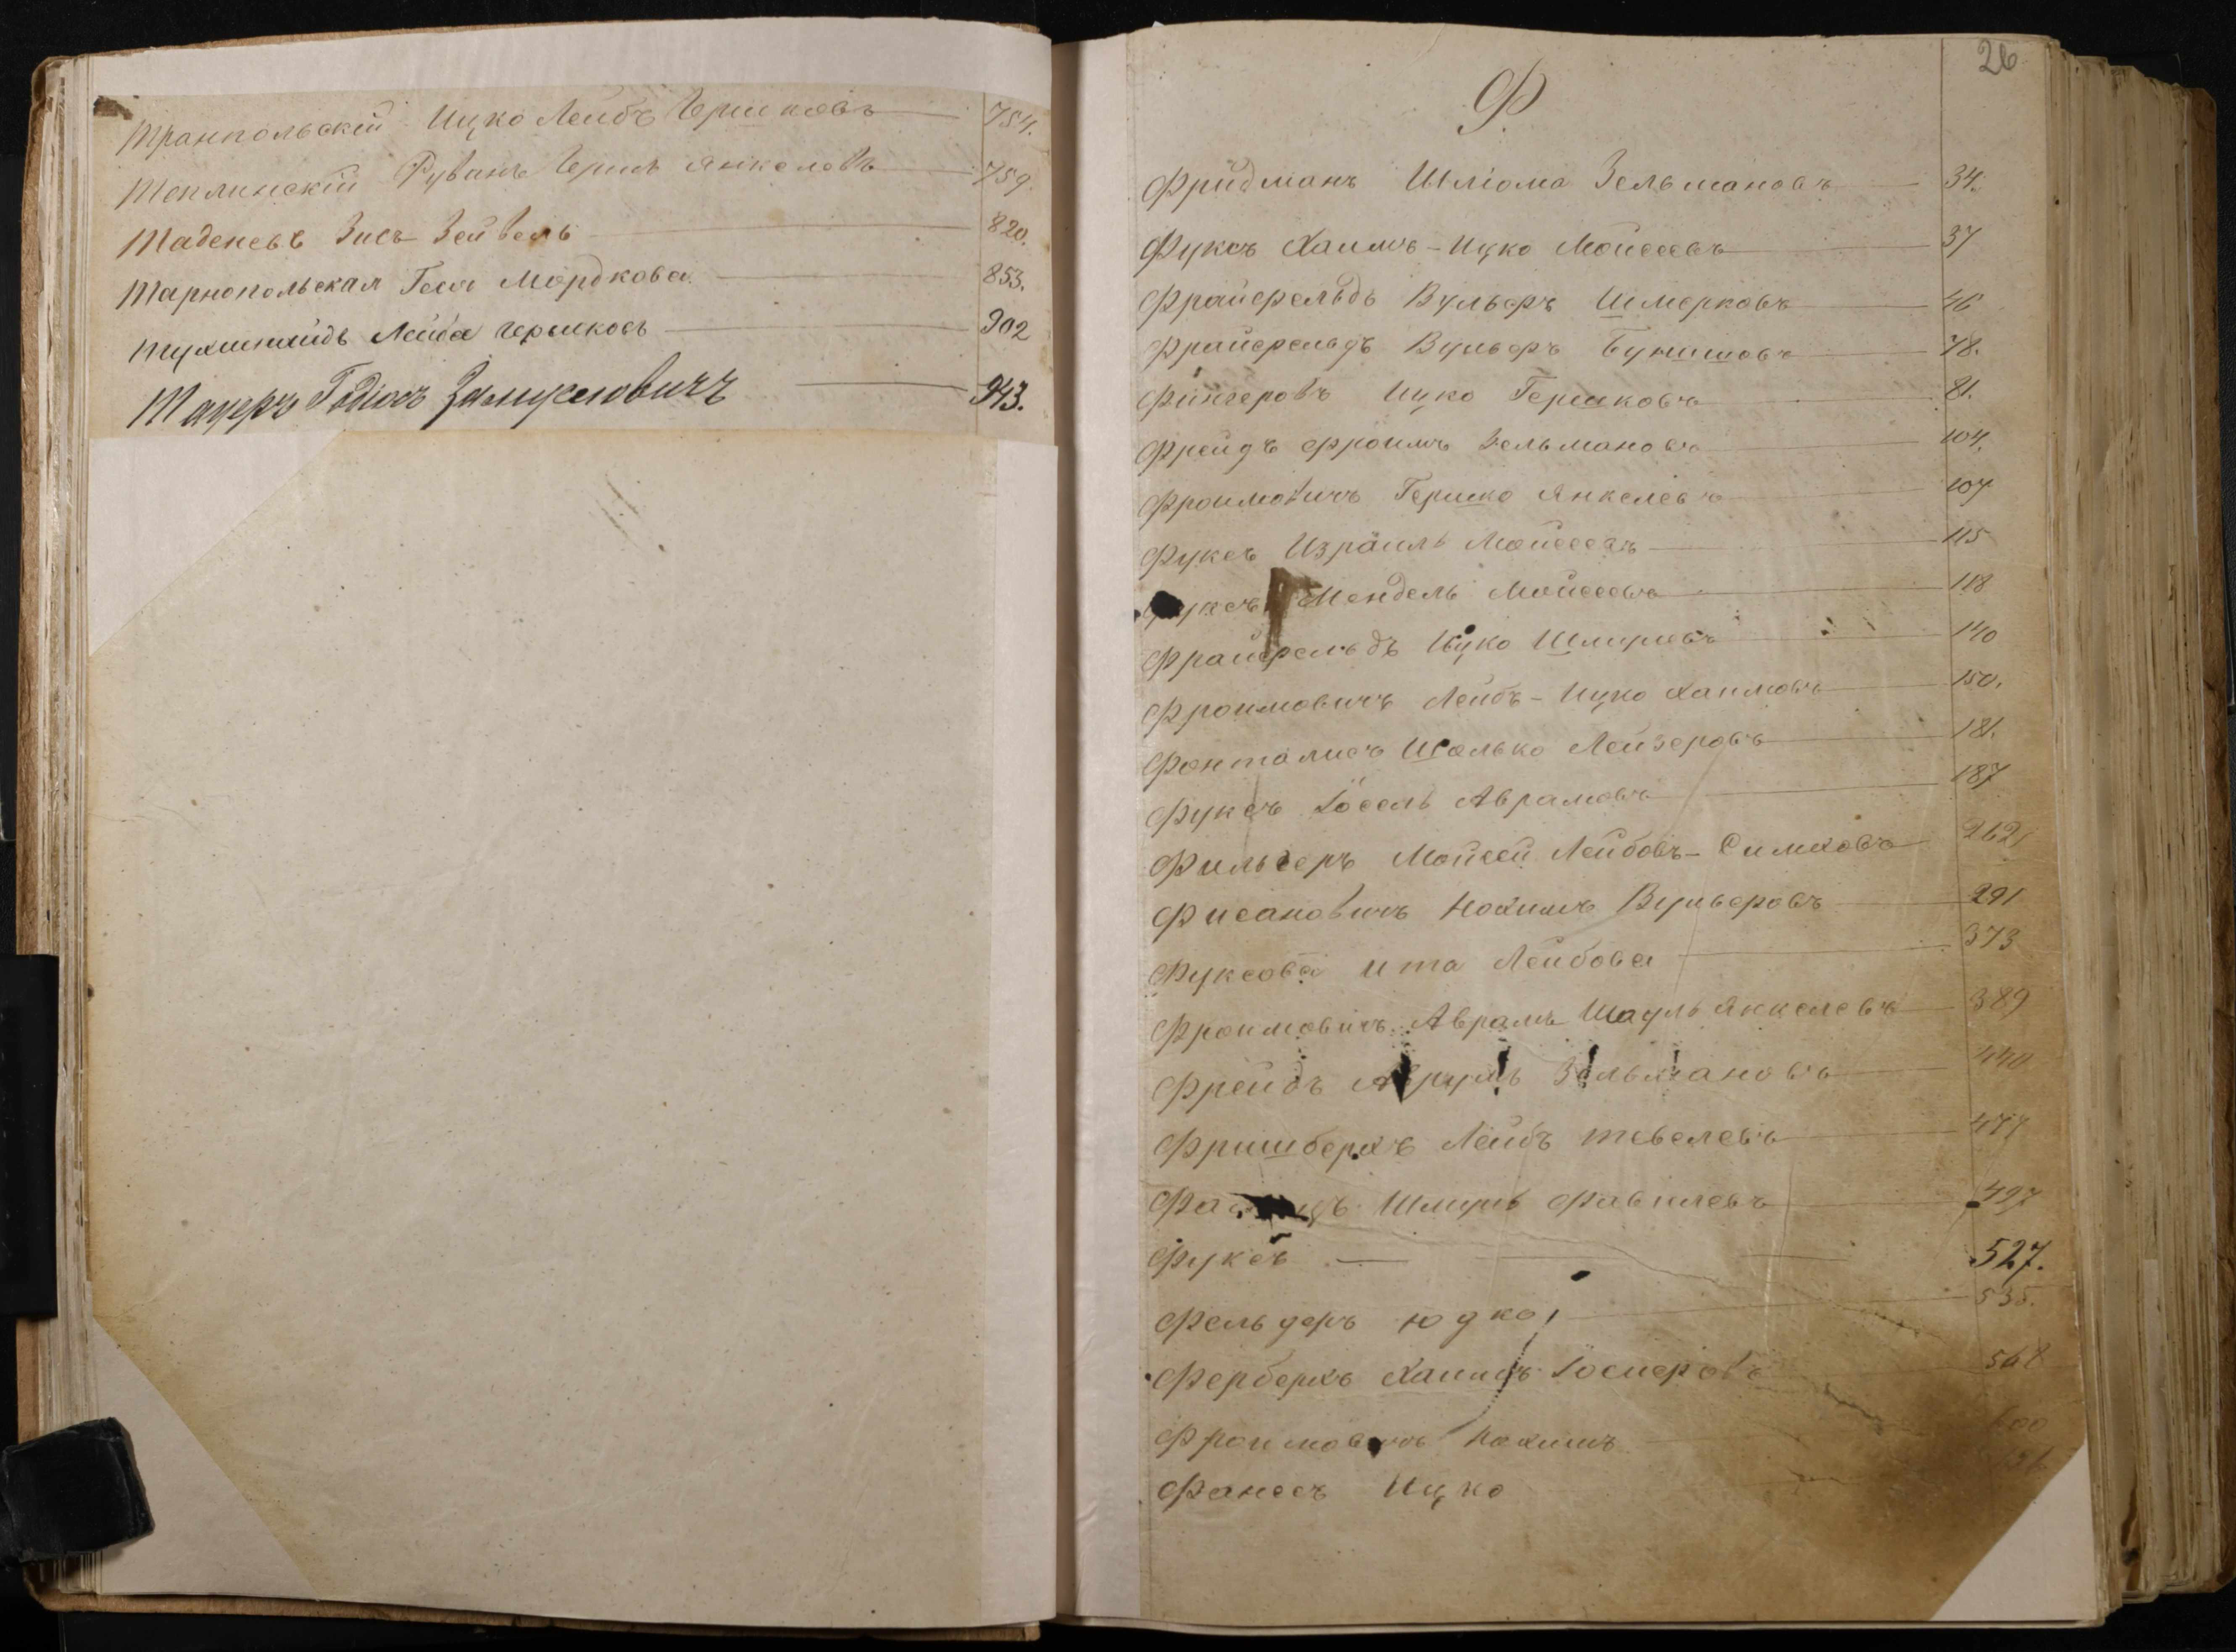 Транпольскій Ицко Лейбъ Гершковъ 754.
Теплинскій Рувинъ Гершъ Янкелевъ 759.
Зись Зейвель 820.
Тарнопольская Геся Мордкова 853.
Лейба Гершковъ 902
Тауеръ 943.
26
Ф
Фрийдманъ Шліома Зельмановъ 34.
Фуксъ Хаимъ-Ицко Мойсеевъ 37
Фрайфельдъ Вульфъ Шмерковъ 46
Фрайфельдъ Вульфъ Бунишовъ 78.
Фингеровъ Ицко Гершковъ 81.
Фрейдъ Фроимъ Зельмановъ 104.
Фроимовичъ Гершко Янкелевъ 107
Фуксъ Израиль Мойсеевъ 115
Фуксъ Мендель Мойсеевъ 118
Фрайфельдъ Ицко Шмулевъ 140
Фроимовичъ Лейбъ-Ицко Хаимовъ 150.
Фонталисъ Шолько Лейзеровъ 181.
Фуксъ Іосель Аврамовъ 187
Фильверъ Мойсей Лейбовъ-Симховъ 262
Фисановичъ Нохимъ Вульфовъ 291
Фуксова Ита Лейбова 373
Фроимовичъ Аврамъ Шауль Янкелевъ 389
Фрейдъ Зельмановъ 440
Фришберхъ Лейбъ Тевелевъ 477
Шмуль Фавилевъ 497
Фуксъ 527.
Фельдеръ Юдко 535.
Ферберхъ Хаимъ 568
Фроимовичъ Нахимъ
Фанесъ Ицко